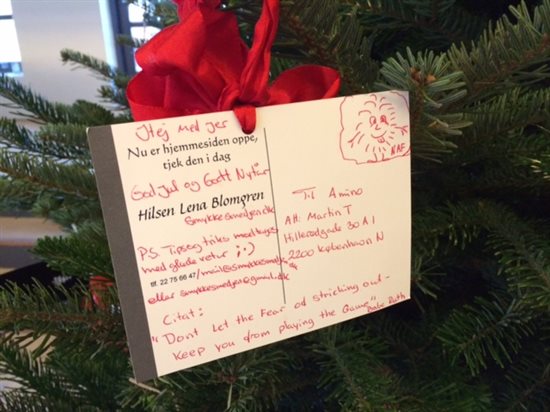 Hej med jer
Nu er hjemmesiden oppe,
tjek den i dag
God jul og Godt Nytår
Hilsen Lena Blomgren
smykkesmedjen.dk
P.S. Tips og triks modtages
med glæde retur ;·)
tlf. 22 75 66 47/mail@smykkesmedjen.dk
eller smykkesmedjen@gmail.dk
NAF
Til Amino
Att: Martin T
Hillerødgade 30 A 1
2200 København N
Citat:
"Dont Let the Fear of striching out -
Keep you from playing the Game" Babe Ruth